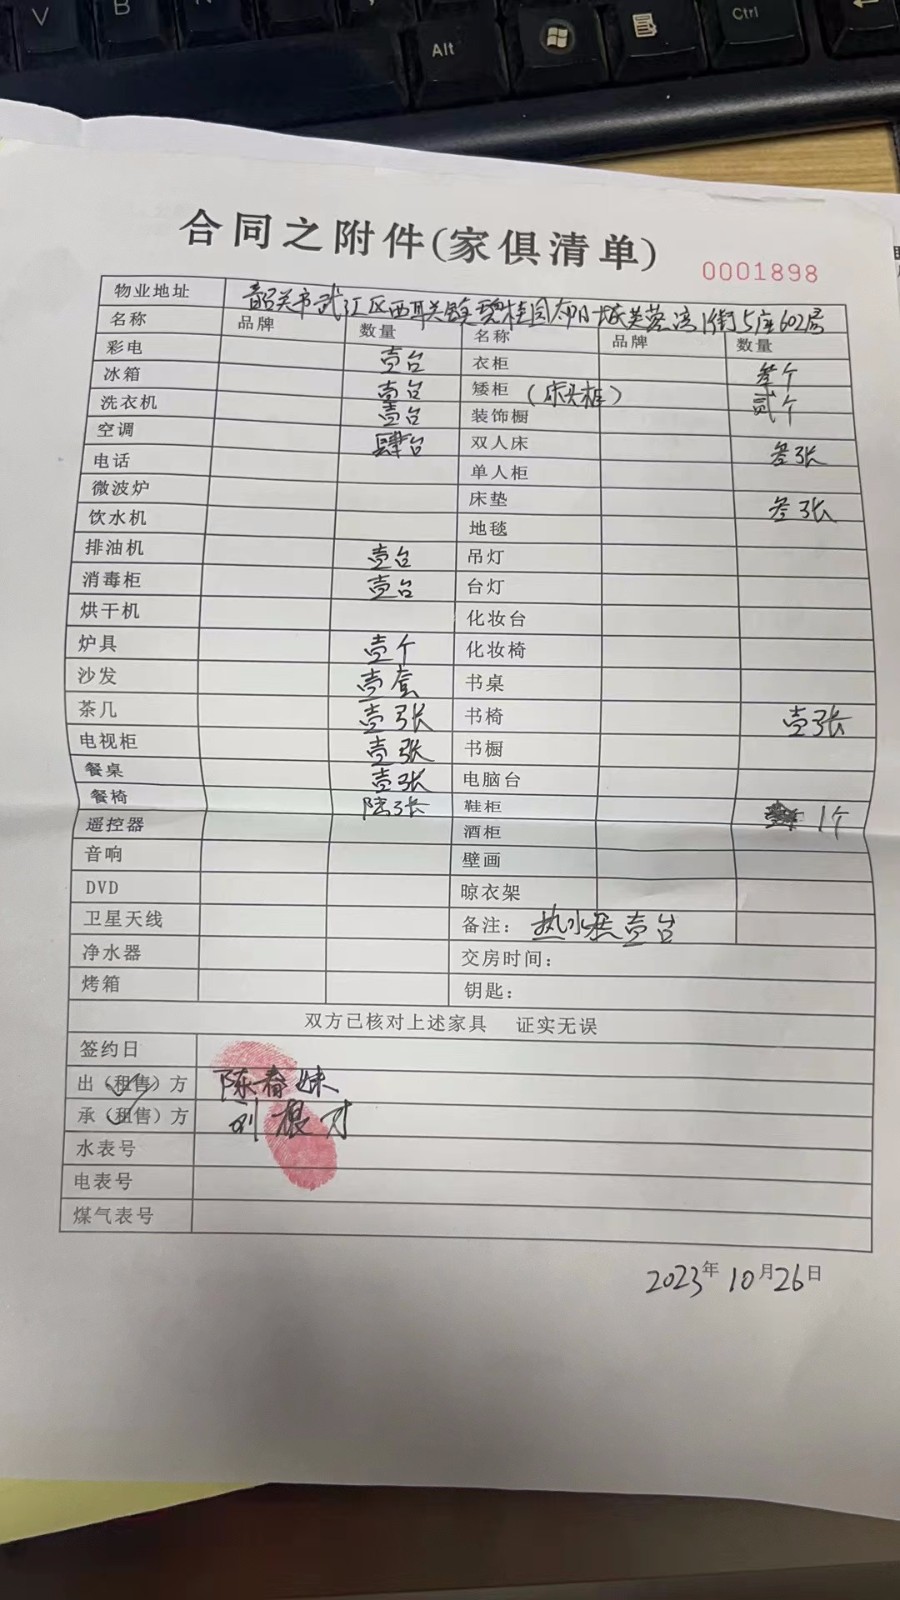 V
B
N
Alt
Ctrl
合同之附件(家俱清单)
0001898
物业地址 韶关市武江区西联镇碧桂园太阳城芙蓉湾1街5座602房
名称 品牌 数量 名称 品牌 数量
彩电 壹台 衣柜 叁个
冰箱 壹台 矮柜 (床头柜) 贰个
洗衣机 壹台 装饰橱
空调 肆台 双人床 叁张
电话 单人柜
微波炉 床垫 叁张
饮水机 地毯
排油机 壹台 吊灯
消毒柜 壹台 台灯
烘干机 化妆台
炉具 壹个 化妆椅
沙发 壹套 书桌
茶几 壹张 书椅 壹张
电视柜 壹张 书橱
餐桌 壹张 电脑台
餐椅 陆张 鞋柜 1个
遥控器 酒柜
音响 壁画
DVD 晾衣架
卫星天线 备注: 热水器壹台
净水器 交房时间:
烤箱 钥匙:
双方已核对上述家具 证实无误
签约日
出(租售)方 陈春妹
承(租售)方 刘根才
水表号
电表号
煤气表号
2023年10月26日